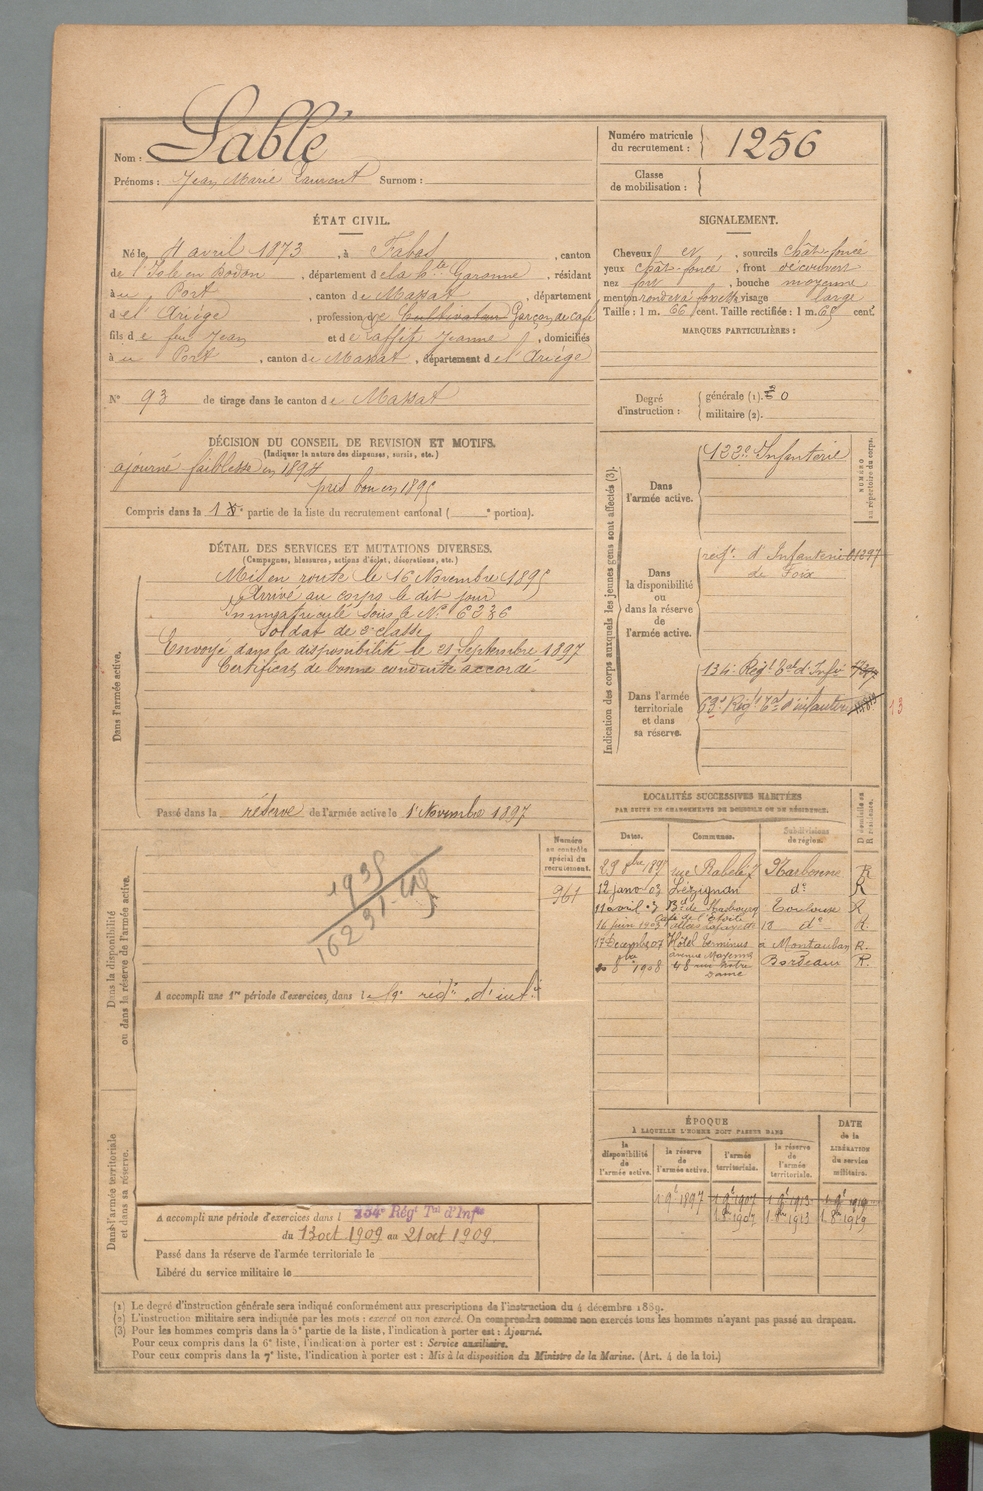 Nom : Sablé
Prénoms : Jean Marie Laurent Surnom :
Numéro matricule du recrutement : 1256
Classe de mobilisation :
ÉTAT CIVIL.
Né le 4 avril 1873, à Fabas, canton
de l'Isle en Dodon, département de la hte Garonne, résidant
à u Port, canton de Massat, département
de l'Ariége, profession de Cultivateur Garçon de café
fils de feu Jean et de Laffite Jeanne, domiciliés
à u Port, canton de Massat, département de l'Ariége
N° 93 de tirage dans le canton de Massat
SIGNALEMENT.
Cheveux et, sourcils chât. foncé
yeux chât. foncé, front découvert
nez fort, bouche moyenne
menton rond à fossette visage large
Taille : 1 m. 66 cent. Taille rectifiée : 1 m. 65 cent.
MARQUES PARTICULIÈRES :
Degré d'instruction : générale (1). 0
militaire (2).
DÉCISION DU CONSEIL DE REVISION ET MOTIFS.
(Indiquer la nature des dispenses, sursis, etc.)
ajourné faiblesse en 1894
pris bon en 1895
Compris dans la 1 partie de la liste du recrutement cantonal ( e portion).
DÉTAIL DES SERVICES ET MUTATIONS DIVERSES.
(Campagnes, blessures, actions d'éclat, décorations, etc.)
Dans l'armée active.
Mis en route le 16 Novembre 1895
Arrivé au corps le dit jour
Immatriculé sous le N° 6236
Soldat de 2e classe
Envoyé dans la disponibilité le 21 Septembre 1897
Certificat de bonne conduite accordé
Passé dans la réserve de l'armée active le 1er Novembre 1897
Indication des corps auxquels les jeunes gens sont affectés (3).
NUMÉRO au répertoire du corps.
Dans l'armée active.
122e Infanterie
Dans la disponibilité ou dans la réserve de l'armée active.
regt. d'Infanterie 01297
de Foix
Dans l'armée territoriale et dans sa réserve.
134e Régt Tal d'Infie
63e Régt Tal d'infanterie
13
LOCALITÉS SUCCESSIVES HABITÉES
PAR SUITE DE CHANGEMENTS DE DOMICILE OU DE RÉSIDENCE.
Dates. Communes. Subdivisions de région. D domicile ou R résidence.
rue Rabelais Narbonne R
12 janv 03 Lézignan do R
11 avril 03 Bd de Strasbourg Toulouse R
16 juin 1903 Café de l'Etoile allées Lafayette 13 do R.
17 Décembre 07 Hôtel Terminus à Montauban R.
8 1908 48 rue Notre Dame Bordeaux R.
Dans la disponibilité ou dans la réserve de l'armée active.
Numéro au contrôle spécial du recrutement.
961
A accompli une 1re période d'exercices, dans le régt. d'infie
Dans l'armée territoriale et dans sa réserve.
A accompli une période d'exercices dans l 134e Régt Tal d'Infie
du 13 oct 1909 au 21 oct 1909.
Passé dans la réserve de l'armée territoriale le
Libéré du service militaire le
ÉPOQUE
À LAQUELLE L'HOMME DOIT PASSER DANS
DATE de la LIBÉRATION du service militaire.
la disponibilité de l'armée active. la réserve de l'armée active. l'armée territoriale. la réserve de l'armée territoriale.
1 9bre 1897 1 9bre 1907 1 9bre 1913 1 9bre 1919
(1) Le degré d'instruction générale sera indiqué conformément aux prescriptions de l'instruction du 4 décembre 1889.
(2) L'instruction militaire sera indiquée par les mots : exercé ou non exercé. On comprendra comme non exercés tous les hommes n'ayant pas passé au drapeau.
(3) Pour les hommes compris dans la 5e partie de la liste, l'indication à porter est : Ajourné.
Pour ceux compris dans la 6e liste, l'indication à porter est : Service auxiliaire.
Pour ceux compris dans la 7e liste, l'indication à porter est : Mis à la disposition du Ministre de la Marine. (Art. 4 de la loi.)